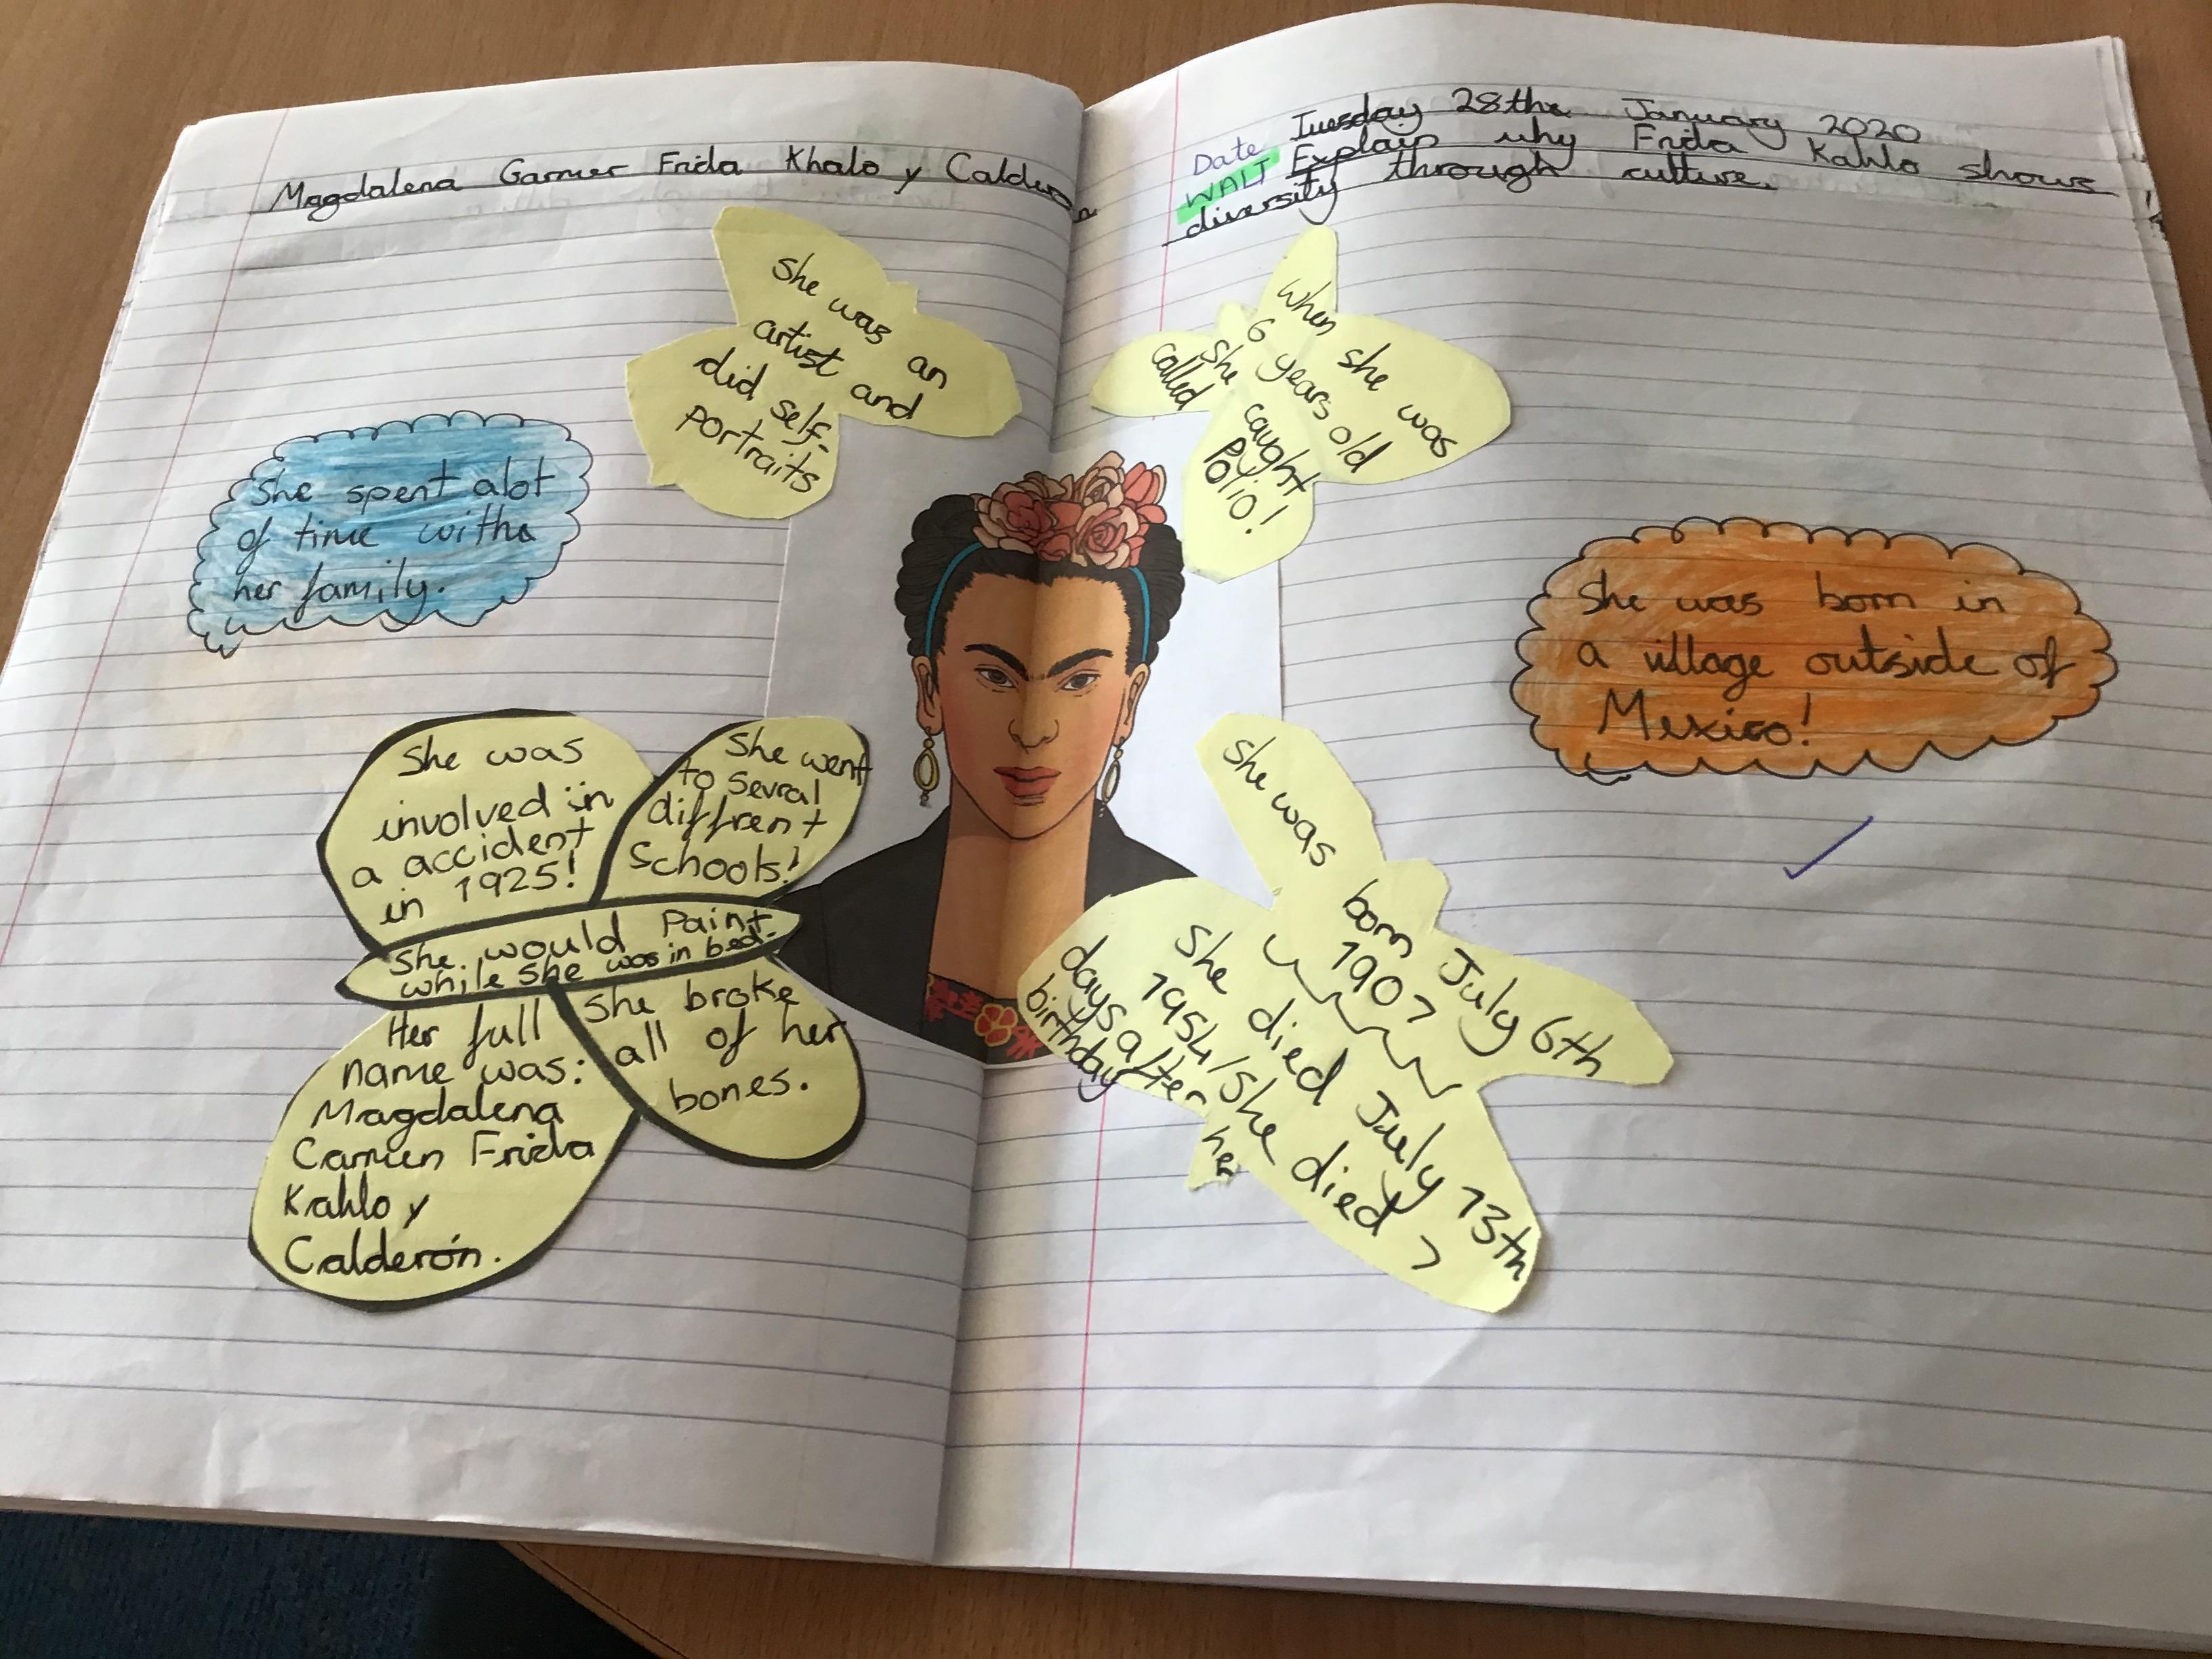 Magdalena Garmer Frida Khalo y Calderon
She was an
artist and
did self-
portraits
She spent alot
of time with
her family.
She was
involved in
a accident
in 1925!
She went
to sevral
diffrent
schools!
She would Paint
while she was in bed.
Her full
name was:
Magdalena
Carmen Frida
Kahlo y
Calderón.
She broke
all of her
bones.
Date Tuesday 28th January 2020
WALT Explain why Frida Kahlo shows
diversity through culture.
When she was
6 years old
she caught
called
Polio!
She was born in
a village outside of
Mexico!
She was born July 6th
1907
She died July 13th
1954/she died 7
days after her
birthday